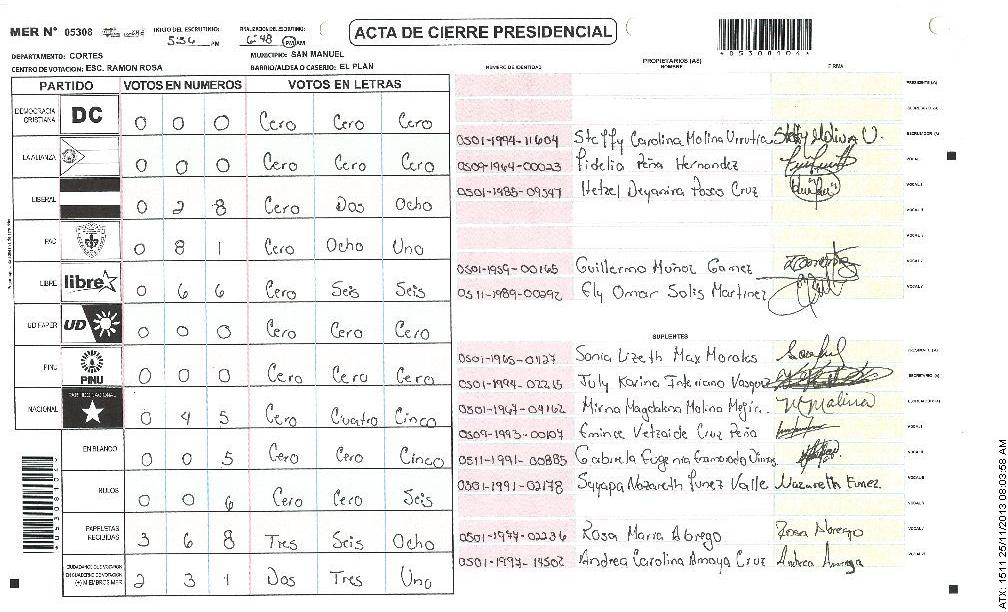 ACTA DE CIERRE PRESIDENCIAL
MER N° 05308
INICIO DEL ESCRUTINIO: 5:36 PM
FINALIZACION DEL ESCRUTINIO: 6:48 PM AM
DEPARTAMENTO: CORTES
MUNICIPIO: SAN MANUEL
CENTRO DE VOTACION: ESC. RAMON ROSA
BARRIO/ALDEA O CASERIO: EL PLAN
PARTIDO VOTOS EN NUMEROS VOTOS EN LETRAS
DEMOCRACIA CRISTIANA DC 0 0 0 Cero Cero Cero
LA ALIANZA 0 0 0 Cero Cero Cero
LIBERAL 0 2 8 Cero Dos Ocho
PAC 0 8 1 Cero Ocho Uno
LIBRE libre 0 6 6 Cero Seis Seis
UD FAPER UD 0 0 0 Cero Cero Cero
PINU PINU 0 0 0 Cero Cero Cero
NACIONAL PARTIDO NACIONAL 0 4 5 Cero Cuatro Cinco
EN BLANCO 0 0 5 Cero Cero Cinco
NULOS 0 0 6 Cero Cero Seis
PAPELETAS RECIBIDAS 3 6 8 Tres Seis Ocho
CIUDADANOS QUE VOTARON EN CUADERNO DE VOTACION (+) MIEMBROS MER 2 3 1 Dos Tres Uno
PROPIETARIOS (AS)
NUMERO DE IDENTIDAD NOMBRE FIRMA
PRESIDENTE (A)
SECRETARIO (A)
0501-1994-11604 Steffy Carolina Molina Urrutia Steffy Molina U. ESCRUTADOR (A)
0509-1964-00023 Fidelio Peña Hernandez VOCAL I
0501-1985-09347 Hetzel Deyanira Posos Cruz
0501-1959-00165 Guillermo Muñoz Gamez
0511-1989-00292 Ely Omar Solis Martinez
SUPLENTES
0501-1965-01127 Sonia Lizeth Max Morales PRESIDENTE (A)
0501-1994-02215 July Karina Interiano Vasquez SECRETARIO (A)
0501-1967-04162 Mirna Magdalena Molina Mejia M Molina ESCRUTADOR (A)
0509-1993-00107 Emince Vetzaide Cruz Peña
0511-1991-00885 Gabriela Eugenia
0501-1991-02178 Sayapa Nazareth Funez Valle Nazareth Funez
0501-1977-02236 Rosa Maria Abrego Rosa Abrego
0501-1997-14502 Andrea Carolina Amaya Cruz Andrea Amaya
ATX: 1511 25/11/2013 08:03:58 AM